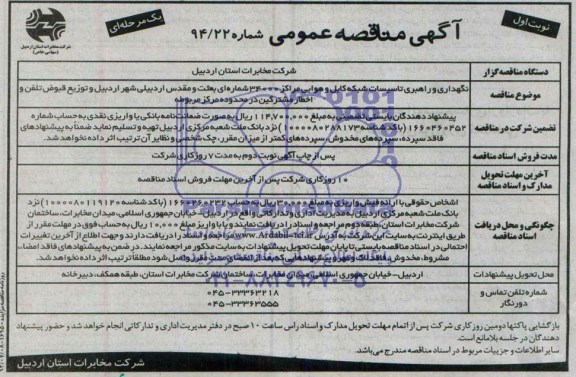 نوبت اول
یک مرحله‌ای
آگهی مناقصه عمومی شماره ۹۴/۲۲
شرکت مخابرات استان اردبیل
(سهامی خاص)
دستگاه مناقصه گزار
شرکت مخابرات استان اردبیل
موضوع مناقصه
نگهداری و راهبری تاسیسات شبکه کابل و هوایی مراکز ۳۴۰۰۰ شماره‌ای بعثت و مقدس اردبیلی شهر اردبیل و توزیع قبوض تلفن و
اخطار مشترکین در محدوده مرکز مربوطه
تضمین شرکت در مناقصه
پیشنهاد دهندگان بایستی تضمینی به مبلغ ۱۱۴,۷۰۰,۰۰۰ ریال به صورت ضمانت نامه بانکی یا واریزی نقدی به حساب شماره
۱۶۶۰۴۶۰۴۵۲ (با کد شناسه ۱۰۰۰۰۰۸۰۲۸۸۱۷۳) نزد بانک ملت شعبه مرکزی اردبیل تهیه و تسلیم نماید ضمنا به پیشنهادهای
فاقد سپرده، سپرده‌های مخدوش، سپرده‌های کمتر از میزان مقرر، چک شخصی و نظایر آن ترتیب اثر داده نخواهد شد.
مدت فروش اسناد مناقصه
پس از چاپ آگهی نوبت دوم به مدت ۷ روز کاری شرکت
آخرین مهلت تحویل
مدارک و اسناد مناقصه
۱۰ روز کاری شرکت پس از آخرین مهلت فروش اسناد مناقصه
چگونگی و محل دریافت
اسناد مناقصه
اشخاص حقوقی با ارائه فیش واریزی به مبلغ ۳۰۰,۰۰۰ ریال به حساب ۱۶۶۰۲۶۰۲۳۲ (با کد شناسه ۱۰۰۰۰۰۸۰۱۱۹۱۲۰) نزد
بانک ملت شعبه مرکزی اردبیل به مدیریت اداری و تدارکاتی واقع در اردبیل - خیابان جمهوری اسلامی، میدان مخابرات، ساختمان
شرکت مخابرات استان، طبقه دوم مراجعه و اسناد را دریافت نمایند و یا با واریز مبلغ ۱۰,۰۰۰ ریال به حساب فوق در مهلت مقرر از
طریق اینترنت به سایت این شرکت به آدرس www.Ardabil-tci.ir مراجعه و اسناد را دریافت دارند و جهت اطلاع از آخرین تغییرات
احتمالی در اسناد مناقصه بایستی تا پایان مهلت تحویل پیشنهادات به سایت مذکور مراجعه نمایند. در ضمن به پیشنهادهای فاقد امضاء،
مشروط، مخدوش، فاقد لاک و مهر و پیشنهادهایی که بعد از انقضای مدت مقرر واصل شود مطلقا ترتیب اثر داده نخواهد شد.
محل تحویل پیشنهادات
اردبیل - خیابان جمهوری اسلامی، میدان مخابرات، ساختمان شرکت مخابرات استان، طبقه همکف، دبیرخانه
شماره تلفن تماس و
دورنگار
۰۴۵-۳۳۳۶۳۲۱۸
۰۴۵-۳۳۳۶۳۵۵۵
بازگشایی پاکتها دومین روز کاری شرکت پس از اتمام مهلت تحویل مدارک و اسناد راس ساعت ۱۰ صبح در دفتر مدیریت اداری و تدارکاتی انجام خواهد شد، و حضور پیشنهاد
دهندگان در جلسه بلامانع است.
سایر اطلاعات و جزییات مربوط در اسناد مناقصه مندرج می‌باشد.
شرکت مخابرات استان اردبیل